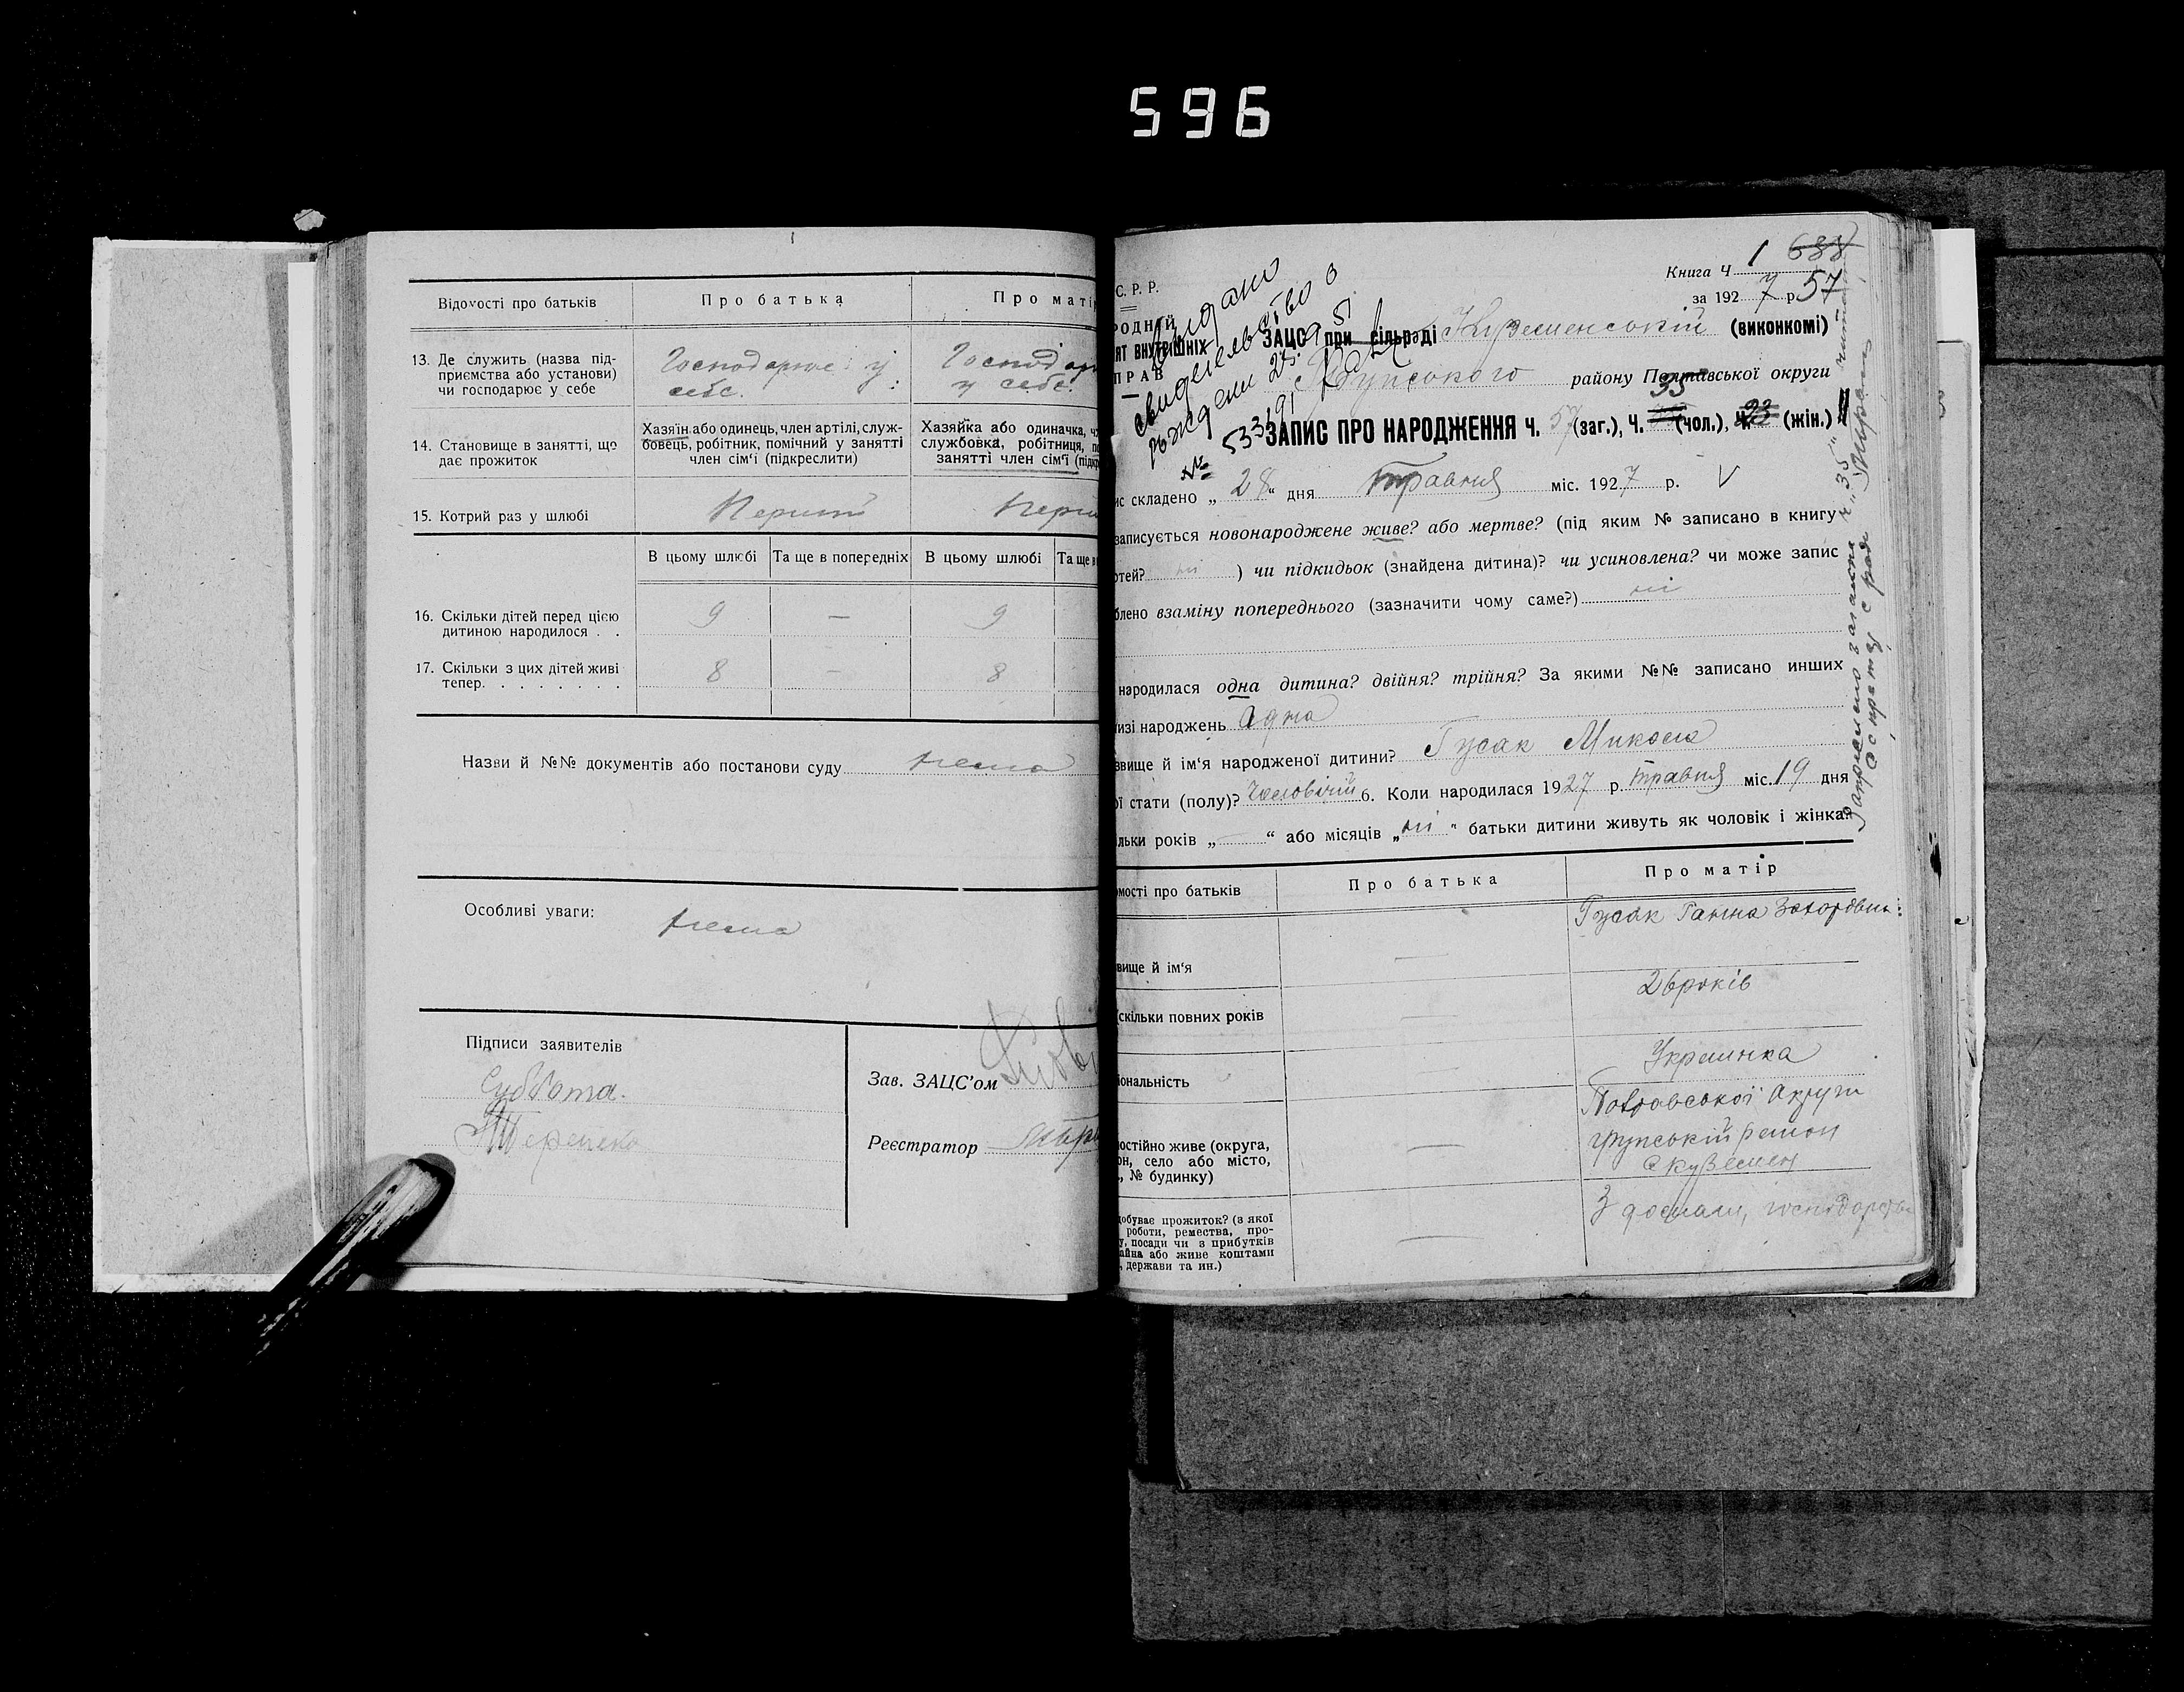 596
Відомості про батьків
Про батька
Про матір
13. Де служить (назва під-
приємства або установи)
чи господарює у себе
Господарює у
себе.
Господар
у себе.
14. Становище в занятті, що
дає прожиток
Хазяїн або одинець, член артілі, служ-
бовець, робітник, помічний у занятті
член сім'ї (підкреслити)
Хазяйка або одиначка, ч
службовка, робітниця, п
занятті член сім'ї (підк
15. Котрий раз у шлюбі
Перший
перш
В цьому шлюбі
Та ще в попередніх
В цьому шлюбі
Та ще в
16. Скільки дітей перед цією
дитиною народилося . .
9 — 9
17. Скільки з цих дітей живі
тепер. . . . . . . .
8 — 8
Назви й №№ документів або постанови суду нема
Особливі уваги:
нема
Підписи заявителів
Суббота.
Зав. ЗАЦС'ом
Реєстратор
Книга Ч. 1 688
за 1927 р. 57
С. Р. Р.
РОДНІЙ
ЯТ ВНУТРІШНІХ
ПРАВ
Выдано
свидетельство о
рождении
№ 533191
ЗАЦС при сільраді Куземенській (виконкомі)
району Полтавської округи
ЗАПИС ПРО НАРОДЖЕННЯ Ч. 57 (заг.), Ч. 35 (чол.), Ч. 23 (жін.)
ис складено „28“ дня травня міс. 1927 р. V
записується новонароджене живе? або мертве? (під яким № записано в книгу
ртей? ні ) чи підкидьок (знайдена дитина)? чи усиновлена? чи може запис
блено взаміну попереднього (зазначити чому саме?) ні
народилася одна дитина? двійня? трійня? За якими №№ записано инших
изі народжень Одна
звище й ім'я народженої дитини? Гусак Микола
ої стати (полу)? Чоловічій 6. Коли народилася 1927 р. травня міс. 19 дня
ільки років „—“ або місяців „ні“ батьки дитини живуть як чоловік і жінка?
омості про батьків
Про батька
Про матір
вище й ім'я
—
Гусак Ганна Захорівна
скільки повних років
—
26 років
іональність
—
Украинка
остійно живе (округа,
он, село або місто,
, № будинку)
—
Полтавської Округи
грунській район
с Куземен
добуває прожиток? (з якої
роботи, ремества, про-
у, посади чи з прибутків
айна або живе коштами
, держави та ин.)
—